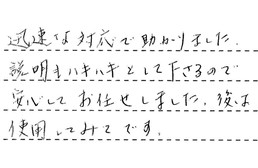 迅速な対応で助かりました。
説明もハキハキとして下さるので
安心してお任せしました。後は
使用してみてです。